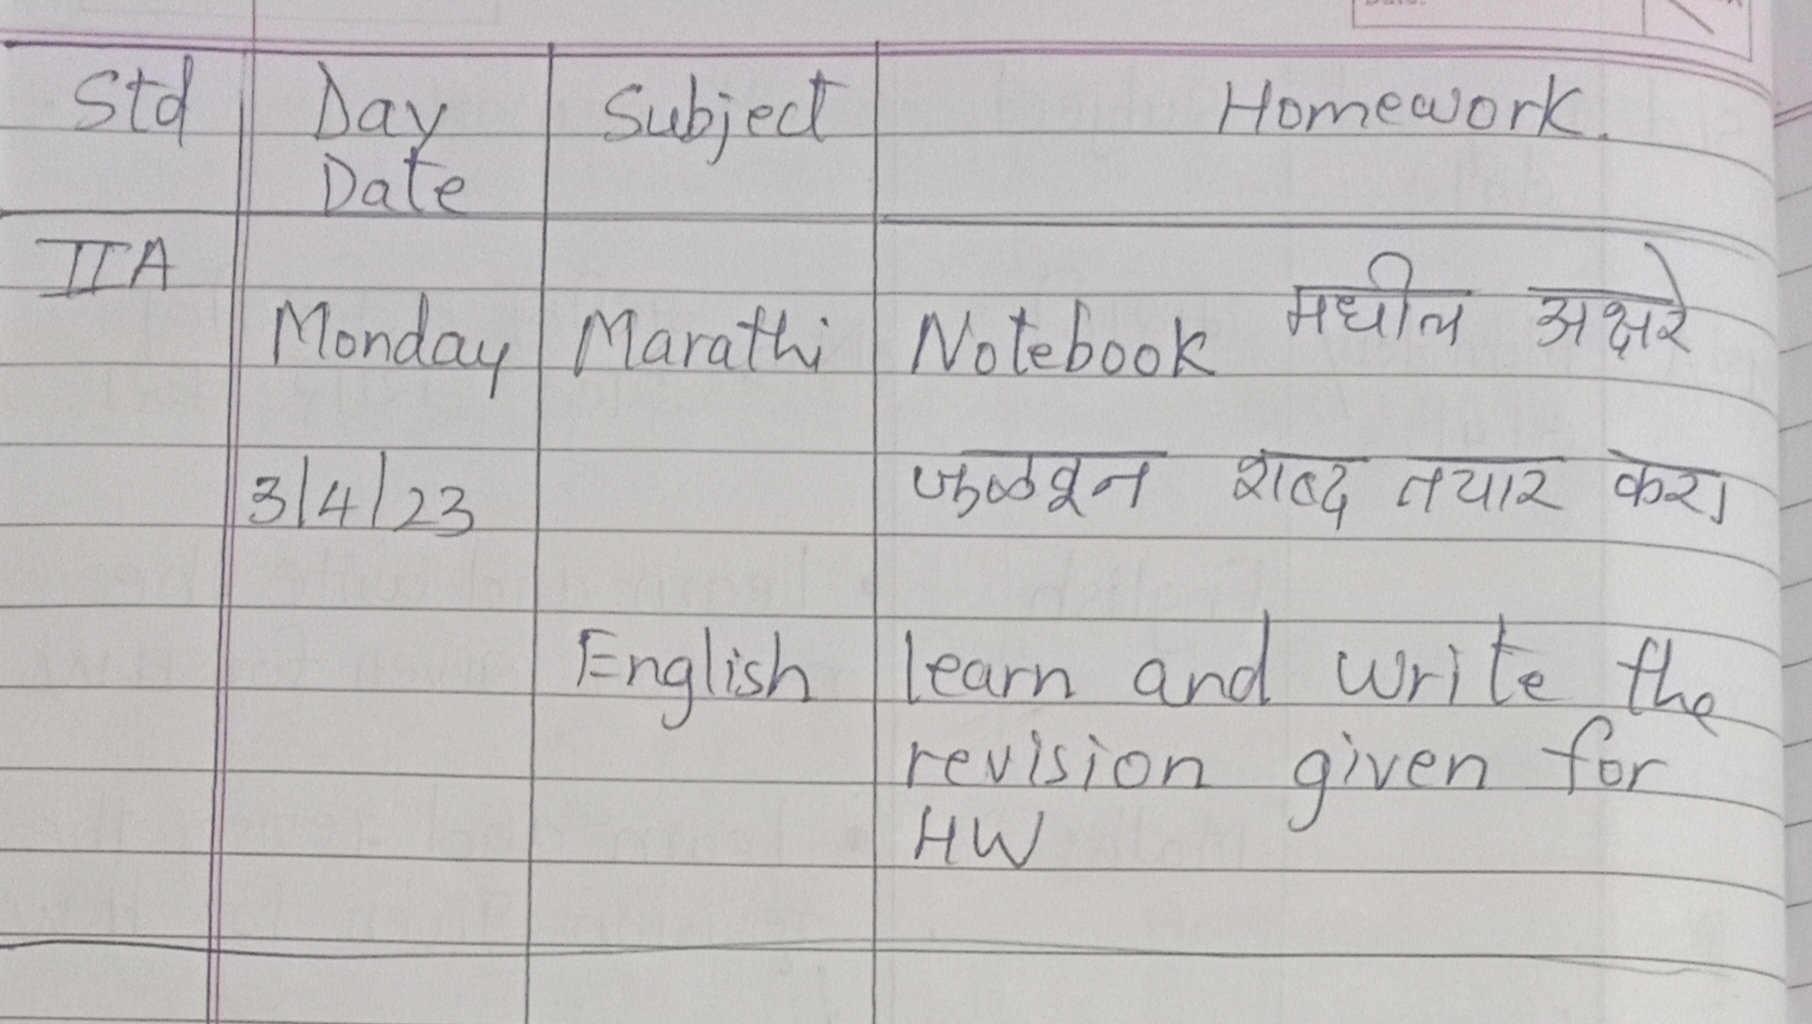 Std Day Subject Homework.
Date
II A
Monday Marathi Notebook मधील अक्षरे
3/4/23 शब्द तयार करा
English learn and write the
revision given for
HW